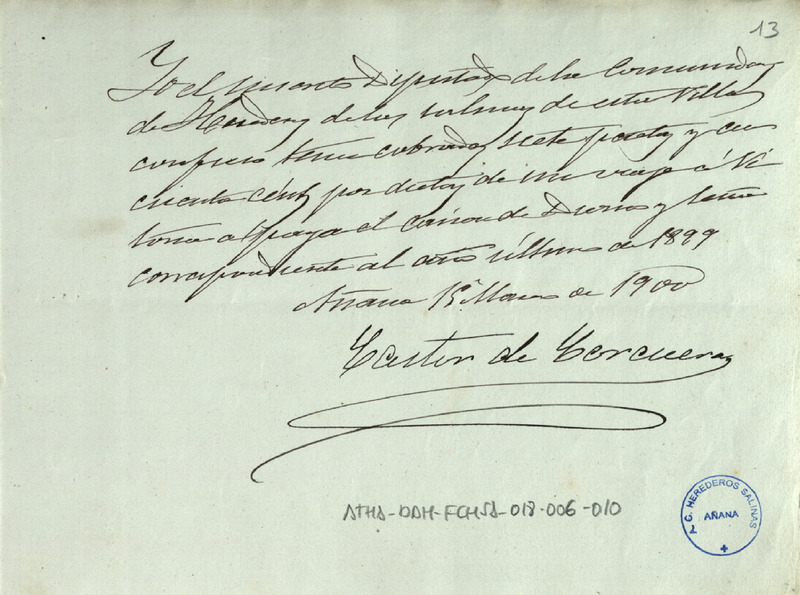 13
Yo el Diputado de la Comunidad
de Herederos de las salinas de esta Villa
confieso tener cobradas siete pesetas y cin
cuenta cént por dietas de mi viage á Vi
toria a pagar el cánon de y
correspondiente al año último de 1899
Añana 15 Marzo de 1900
Castor de Corcuera
ATHA-DAH-FCHSA-018-006-010
C. HEREDEROS SALINAS
AÑANA